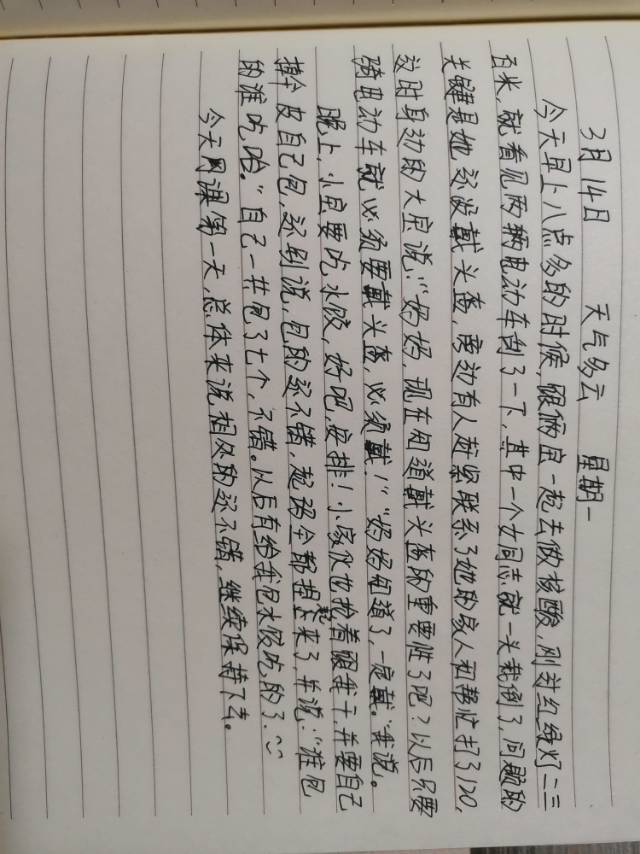 3月14日 天气多云 星期一
今天早上八点多的时候，跟俩宝一起去做核酸，刚过红绿灯二三
百米，就看见两辆电动车刮了一下，其中一个女同志就一头栽倒了，问题的
关键是她还没戴头盔，旁边有人赶紧联系了她的家人和帮忙打了120，
这时身边的大宝说："妈妈，现在知道戴头盔的重要性了吧？以后只要
骑电动车就必须要戴头盔，必须戴！""妈妈知道了，一定戴。"我说。
晚上，小宝要吃水饺，好吧，安排！小家伙也抢着跟我干，并要自己
擀皮自己包，还别说，包的还不错，起码全都捏起来了，并说："谁包
的谁吃哈。"自己一共包了七个，不错。以后有给我包水饺吃的了.
今天网课第一天，总体来说相处的还不错，继续保持下去。